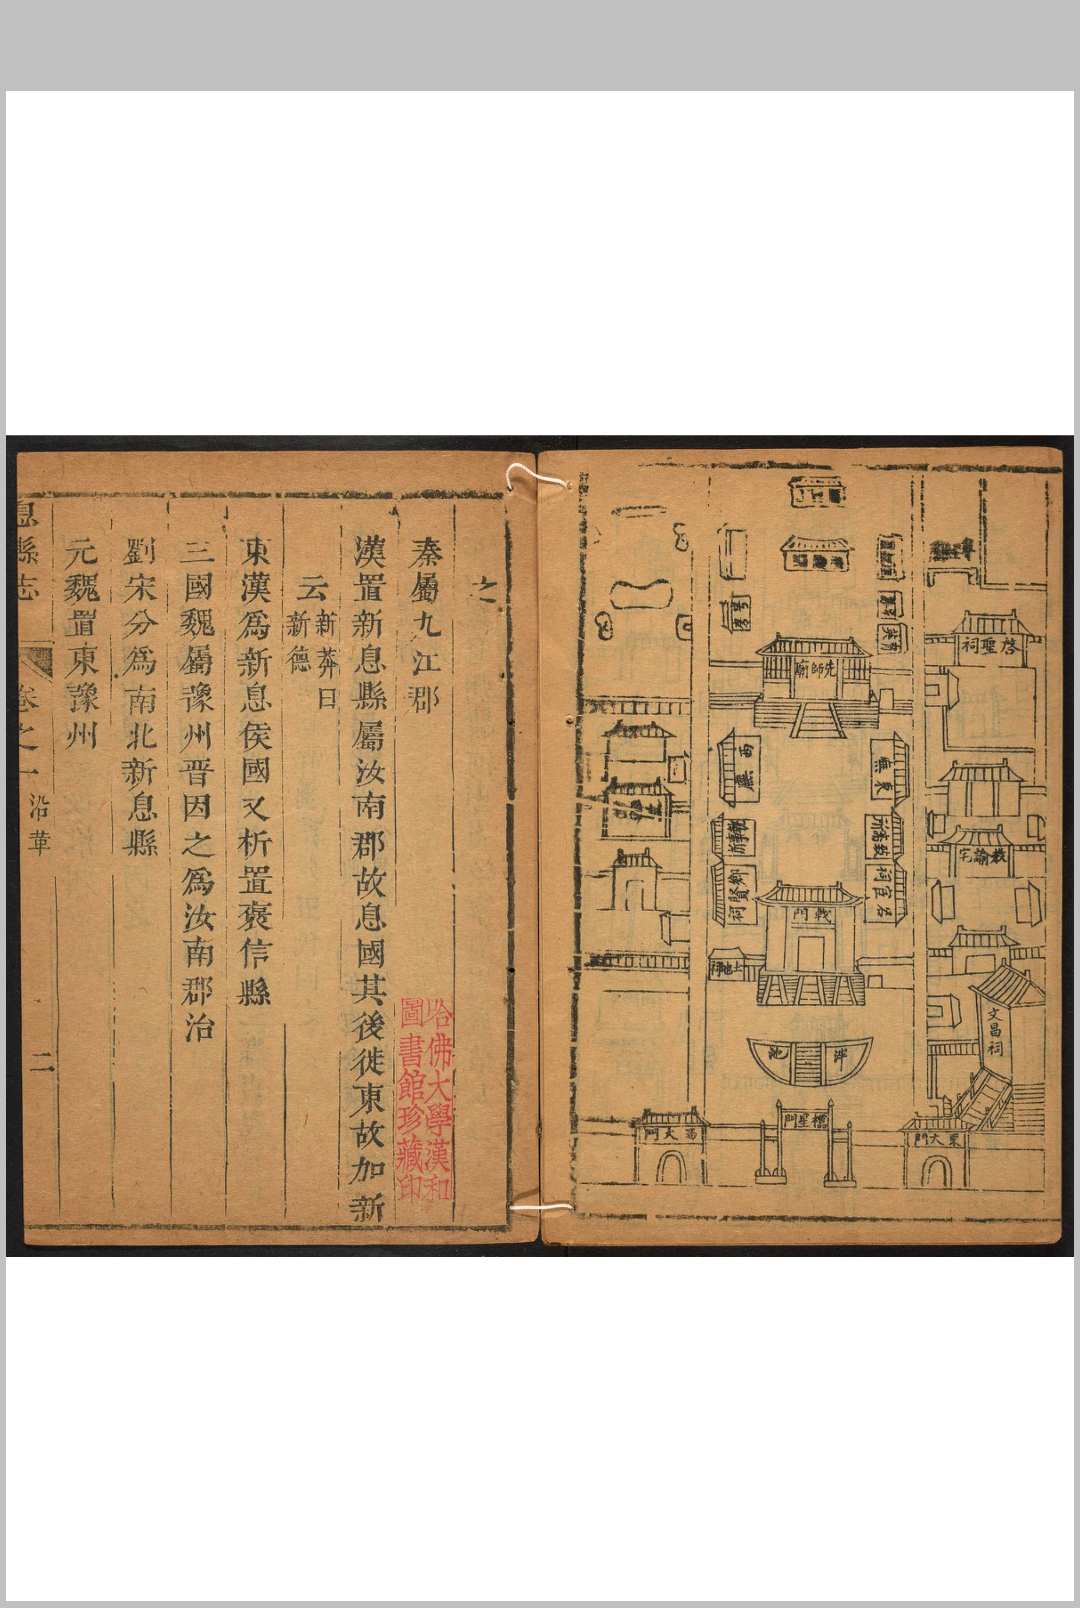 啓聖祠
先師廟
西廡
東廡
教諭宅
鄉賢祠
名宦祠
戟門
土地祠
文昌祠
泮池
櫺星門
大門
大門
之
秦屬九江郡
漢置新息縣屬汝南郡故息國其後徙東故加新
云新莽曰
新德
東漢爲新息侯國又析置褒信縣
三國魏屬豫州晋因之爲汝南郡治
劉宋分爲南北新息縣
元魏置東豫州
息縣志
卷之一
沿革
二
哈佛大學漢和
圖書館珍藏印